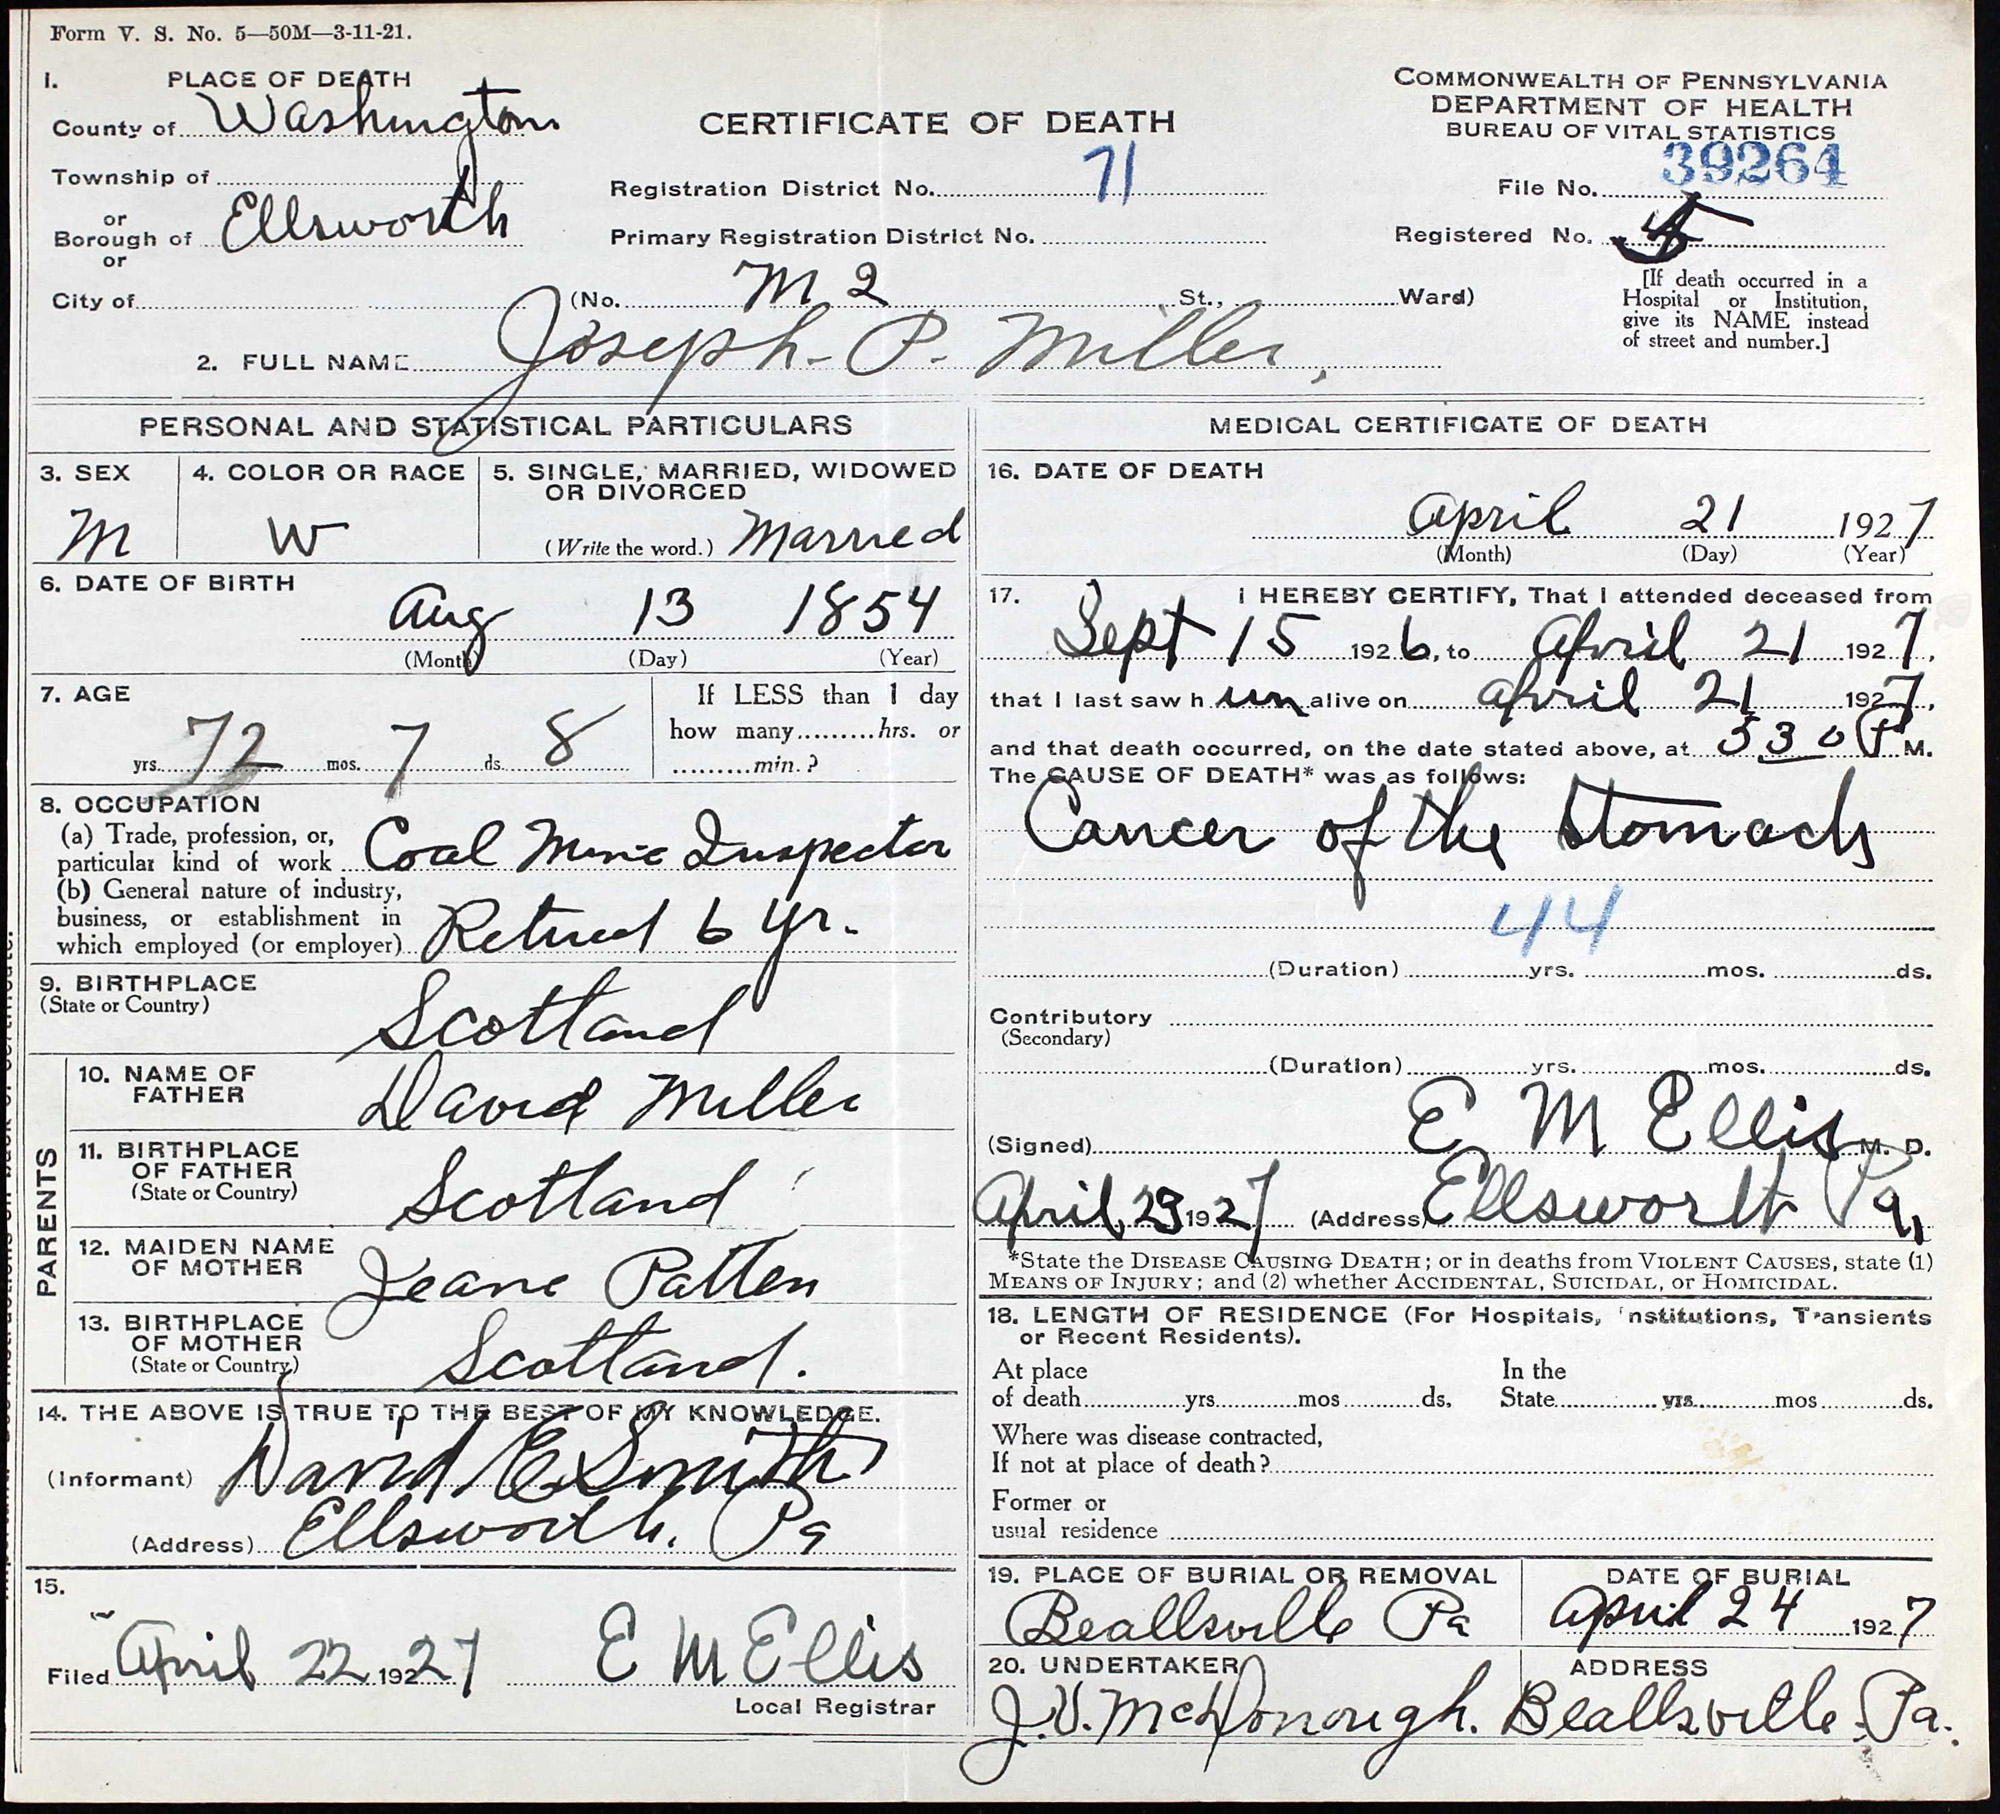 Form V. S. No. 5—50M—3-11-21.
1. PLACE OF DEATH
County of Washington
Township of
or
Borough of Ellsworth
or
City of
CERTIFICATE OF DEATH
Registration District No. 71
Primary Registration District No.
(No. M 2 St., Ward)
COMMONWEALTH OF PENNSYLVANIA
DEPARTMENT OF HEALTH
BUREAU OF VITAL STATISTICS
File No. 39264
Registered No.
[If death occurred in a
Hospital or Institution,
give its NAME instead
of street and number.]
2. FULL NAME Joseph P. Miller,
PERSONAL AND STATISTICAL PARTICULARS
3. SEX
M
4. COLOR OR RACE
W
5. SINGLE, MARRIED, WIDOWED
OR DIVORCED
(Write the word.) Married
6. DATE OF BIRTH
Aug 13 1854
(Month) (Day) (Year)
7. AGE
yrs. 72 mos. 7 ds. 8
If LESS than 1 day
how many.........hrs. or
.........min.?
8. OCCUPATION
(a) Trade, profession, or,
particular kind of work Coal Mine Inspector
(b) General nature of industry,
business, or establishment in
which employed (or employer) Retired 6 yr.
9. BIRTHPLACE
(State or Country)
Scotland
PARENTS
10. NAME OF
FATHER
David Miller
11. BIRTHPLACE
OF FATHER
(State or Country)
Scotland
12. MAIDEN NAME
OF MOTHER
Jeane Patten
13. BIRTHPLACE
OF MOTHER
(State or Country)
Scotland.
14. THE ABOVE IS TRUE TO THE BEST OF MY KNOWLEDGE.
(Informant) David E Smith
(Address) Ellsworth. Pa
15.
Filed April 22, 192 27 E M Ellis
Local Registrar
MEDICAL CERTIFICATE OF DEATH
16. DATE OF DEATH
April 21 1927
(Month) (Day) (Year)
17. I HEREBY CERTIFY, That I attended deceased from
Sept 15 1926, to April 21 1927,
that I last saw h im alive on April 21 1927,
and that death occurred, on the date stated above, at 5 30 P M.
The CAUSE OF DEATH* was as follows:
Cancer of the Stomach
44
(Duration) yrs. mos. ds.
Contributory
(Secondary)
(Duration) yrs. mos. ds.
(Signed) E M Ellis M. D.
April, 23 1927 (Address) Ellsworth Pa,
*State the DISEASE CAUSING DEATH; or in deaths from VIOLENT CAUSES, state (1)
MEANS OF INJURY; and (2) whether ACCIDENTAL, SUICIDAL, or HOMICIDAL.
18. LENGTH OF RESIDENCE (For Hospitals, Institutions, Transients
or Recent Residents).
At place
of death yrs mos ds,
In the
State yrs mos ds.
Where was disease contracted,
If not at place of death?
Former or
usual residence
19. PLACE OF BURIAL OR REMOVAL
Beallsville Pa
DATE OF BURIAL
April 24 1927
20. UNDERTAKER
J. V. McDonough.
ADDRESS
Beallsville, Pa.